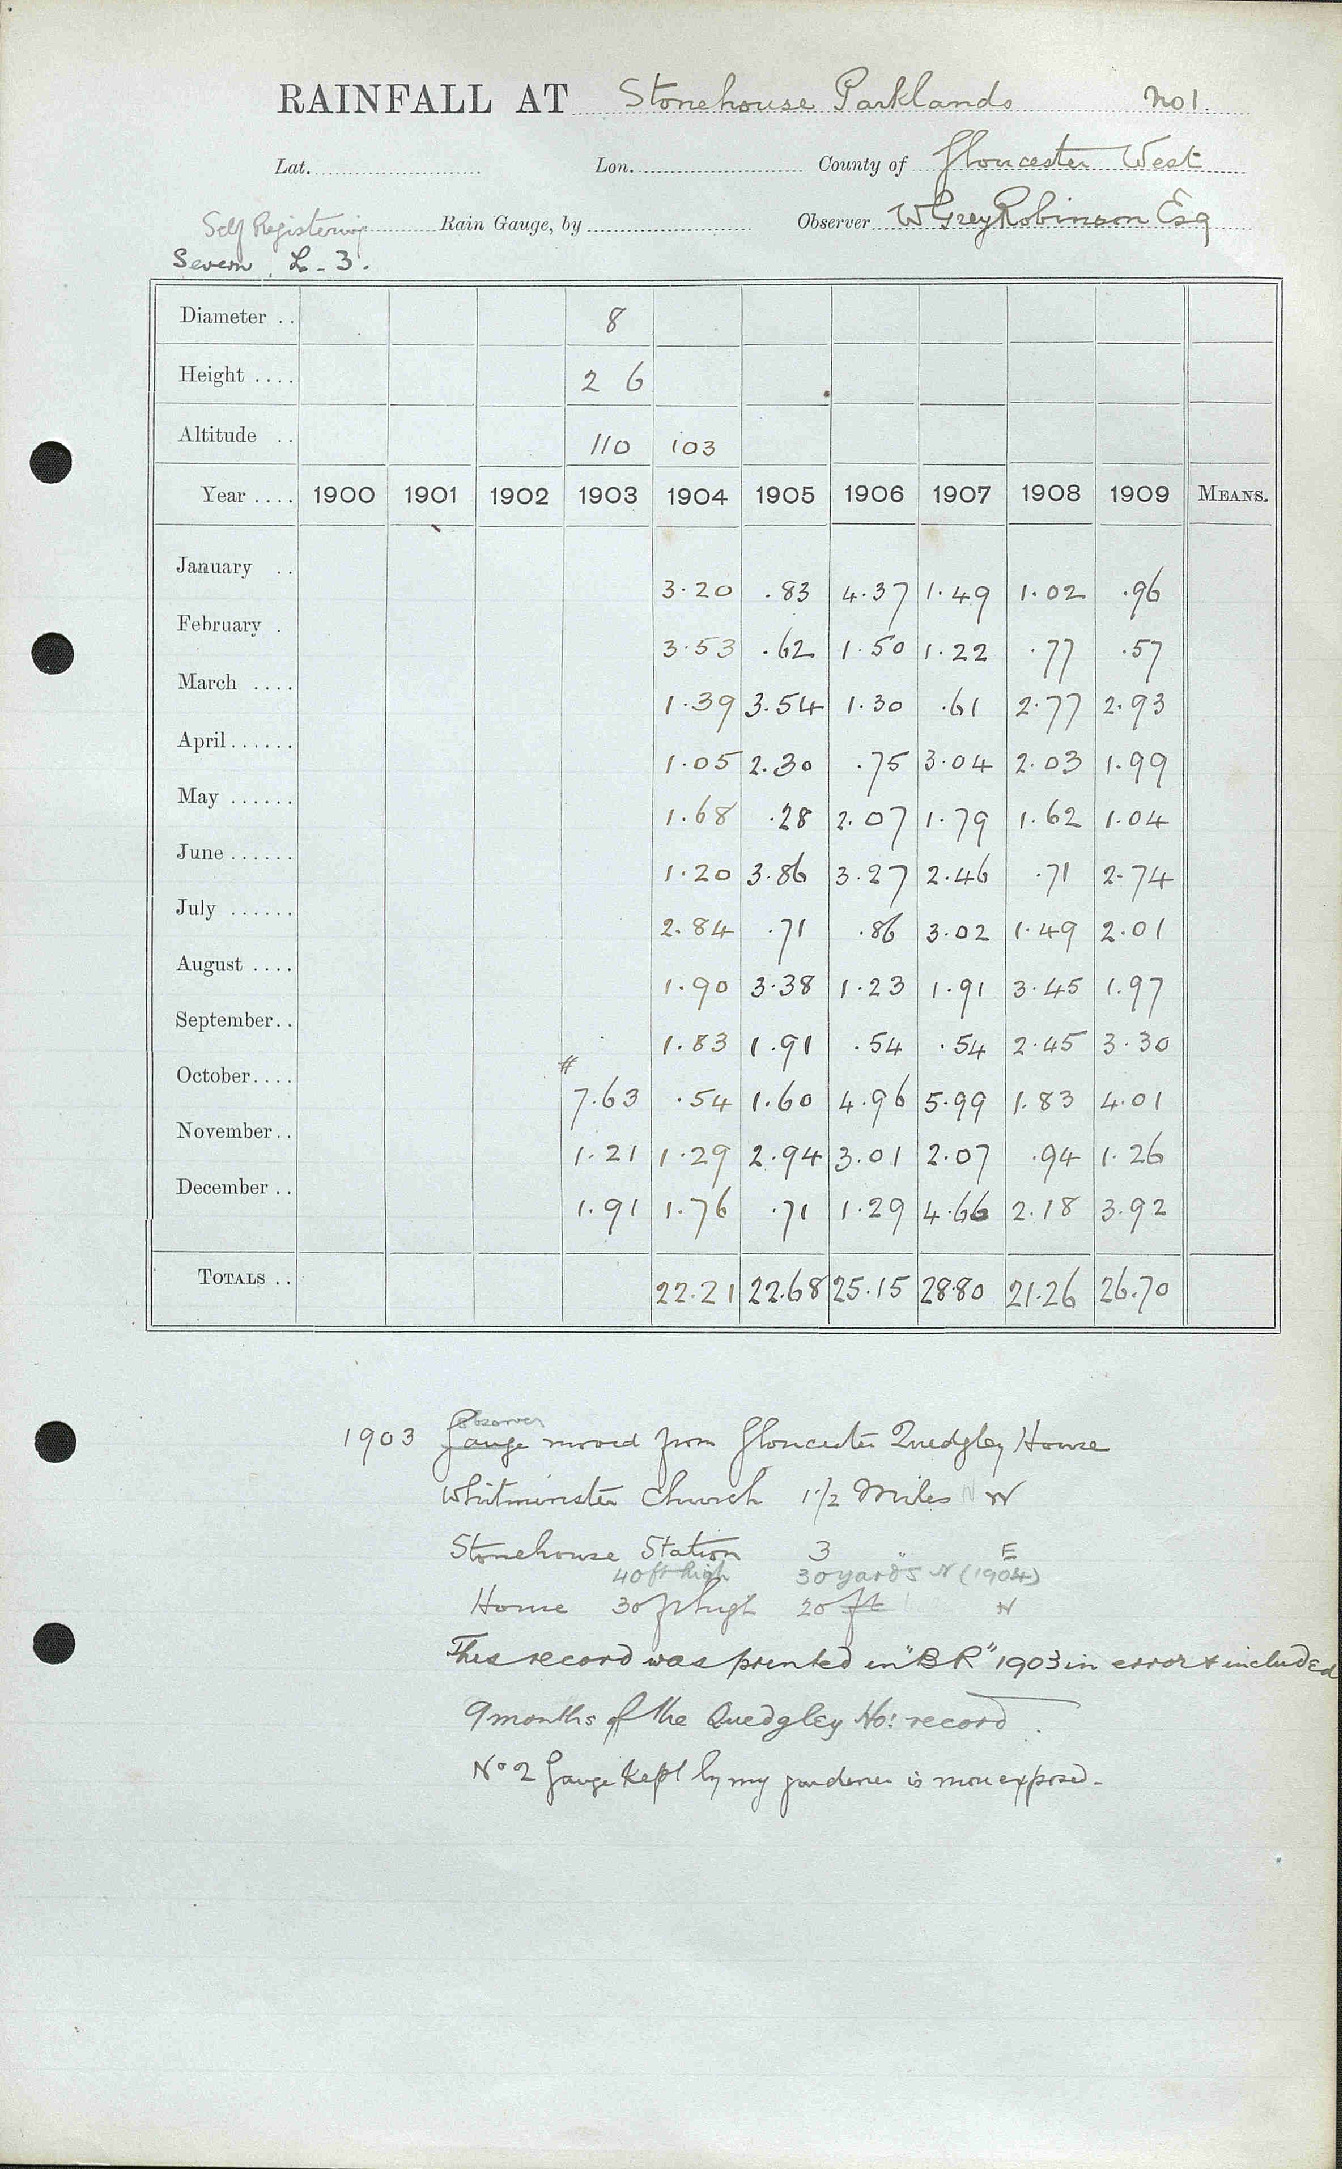 RAINFALL AT Stonehouse Parklands No 1.
Lat. Lon. County of Gloucester West
Self Registering Rain Gauge, by Observer W Grey Robinson Esq
Severn L - 3.
Diameter .. 8
Height .... 2 6
Altitude .. 110 103
Year .... 1900 1901 1902 1903 1904 1905 1906 1907 1908 1909 MEANS.
January .. 3.20 .83 4.37 1.49 1.02 .96
February . 3.53 .62 1.50 1.22 .77 .57
March .... 1.39 3.54 1.30 .61 2.77 2.93
April...... 1.05 2.30 .75 3.04 2.03 1.99
May ...... 1.68 .28 2.07 1.79 1.62 1.04
June...... 1.20 3.86 3.27 2.46 .71 2.74
July ...... 2.84 .71 .86 3.02 1.49 2.01
August .... 1.90 3.38 1.23 1.91 3.45 1.97
September.. 1.83 1.91 .54 .54 2.45 3.30
October.... # 7.63 .54 1.60 4.96 5.99 1.83 4.01
November.. 1.21 1.29 2.94 3.01 2.07 .94 1.26
December .. 1.91 1.76 .71 1.29 4.66 2.18 3.92
TOTALS .. 22.21 22.68 25.15 28.80 21.26 26.70
observer
1903 Gauge moved from Gloucester Quedgley House
Whitminster Church 1 1/2 Miles N W
Stonehouse Station 3 " E
40 ft high 30 yards N (1904)
House 30 ft high 20 ft N
This record was printed in "B R" 1903 in error & included
9 months of the Quedgley Ho: record.
No 2 Gauge kept by my gardener is more exposed.